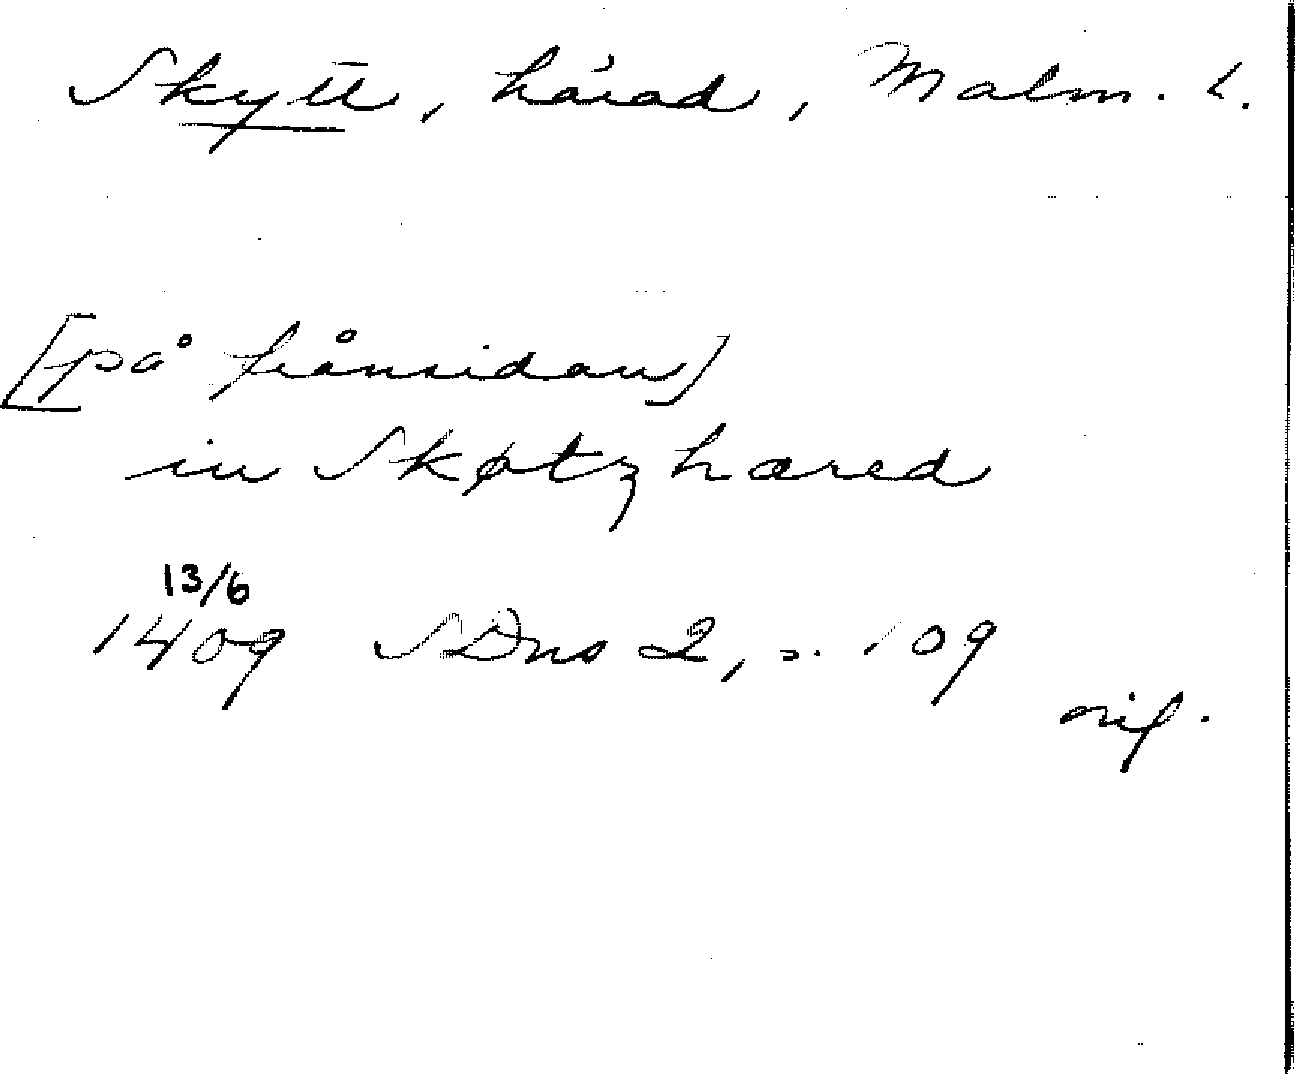 Skytt, härad, Malm. L.
[på frånsidan]
in Skøtzhæred
13/6
1409 SDns 2, s. 109
orig.